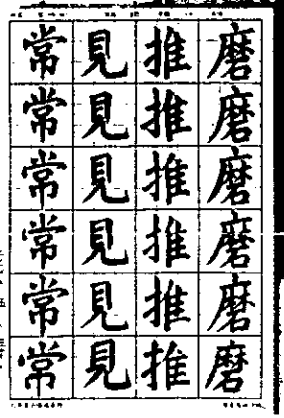 磨磨磨磨磨磨
推推推推推推
見見見見見見
常常常常常常